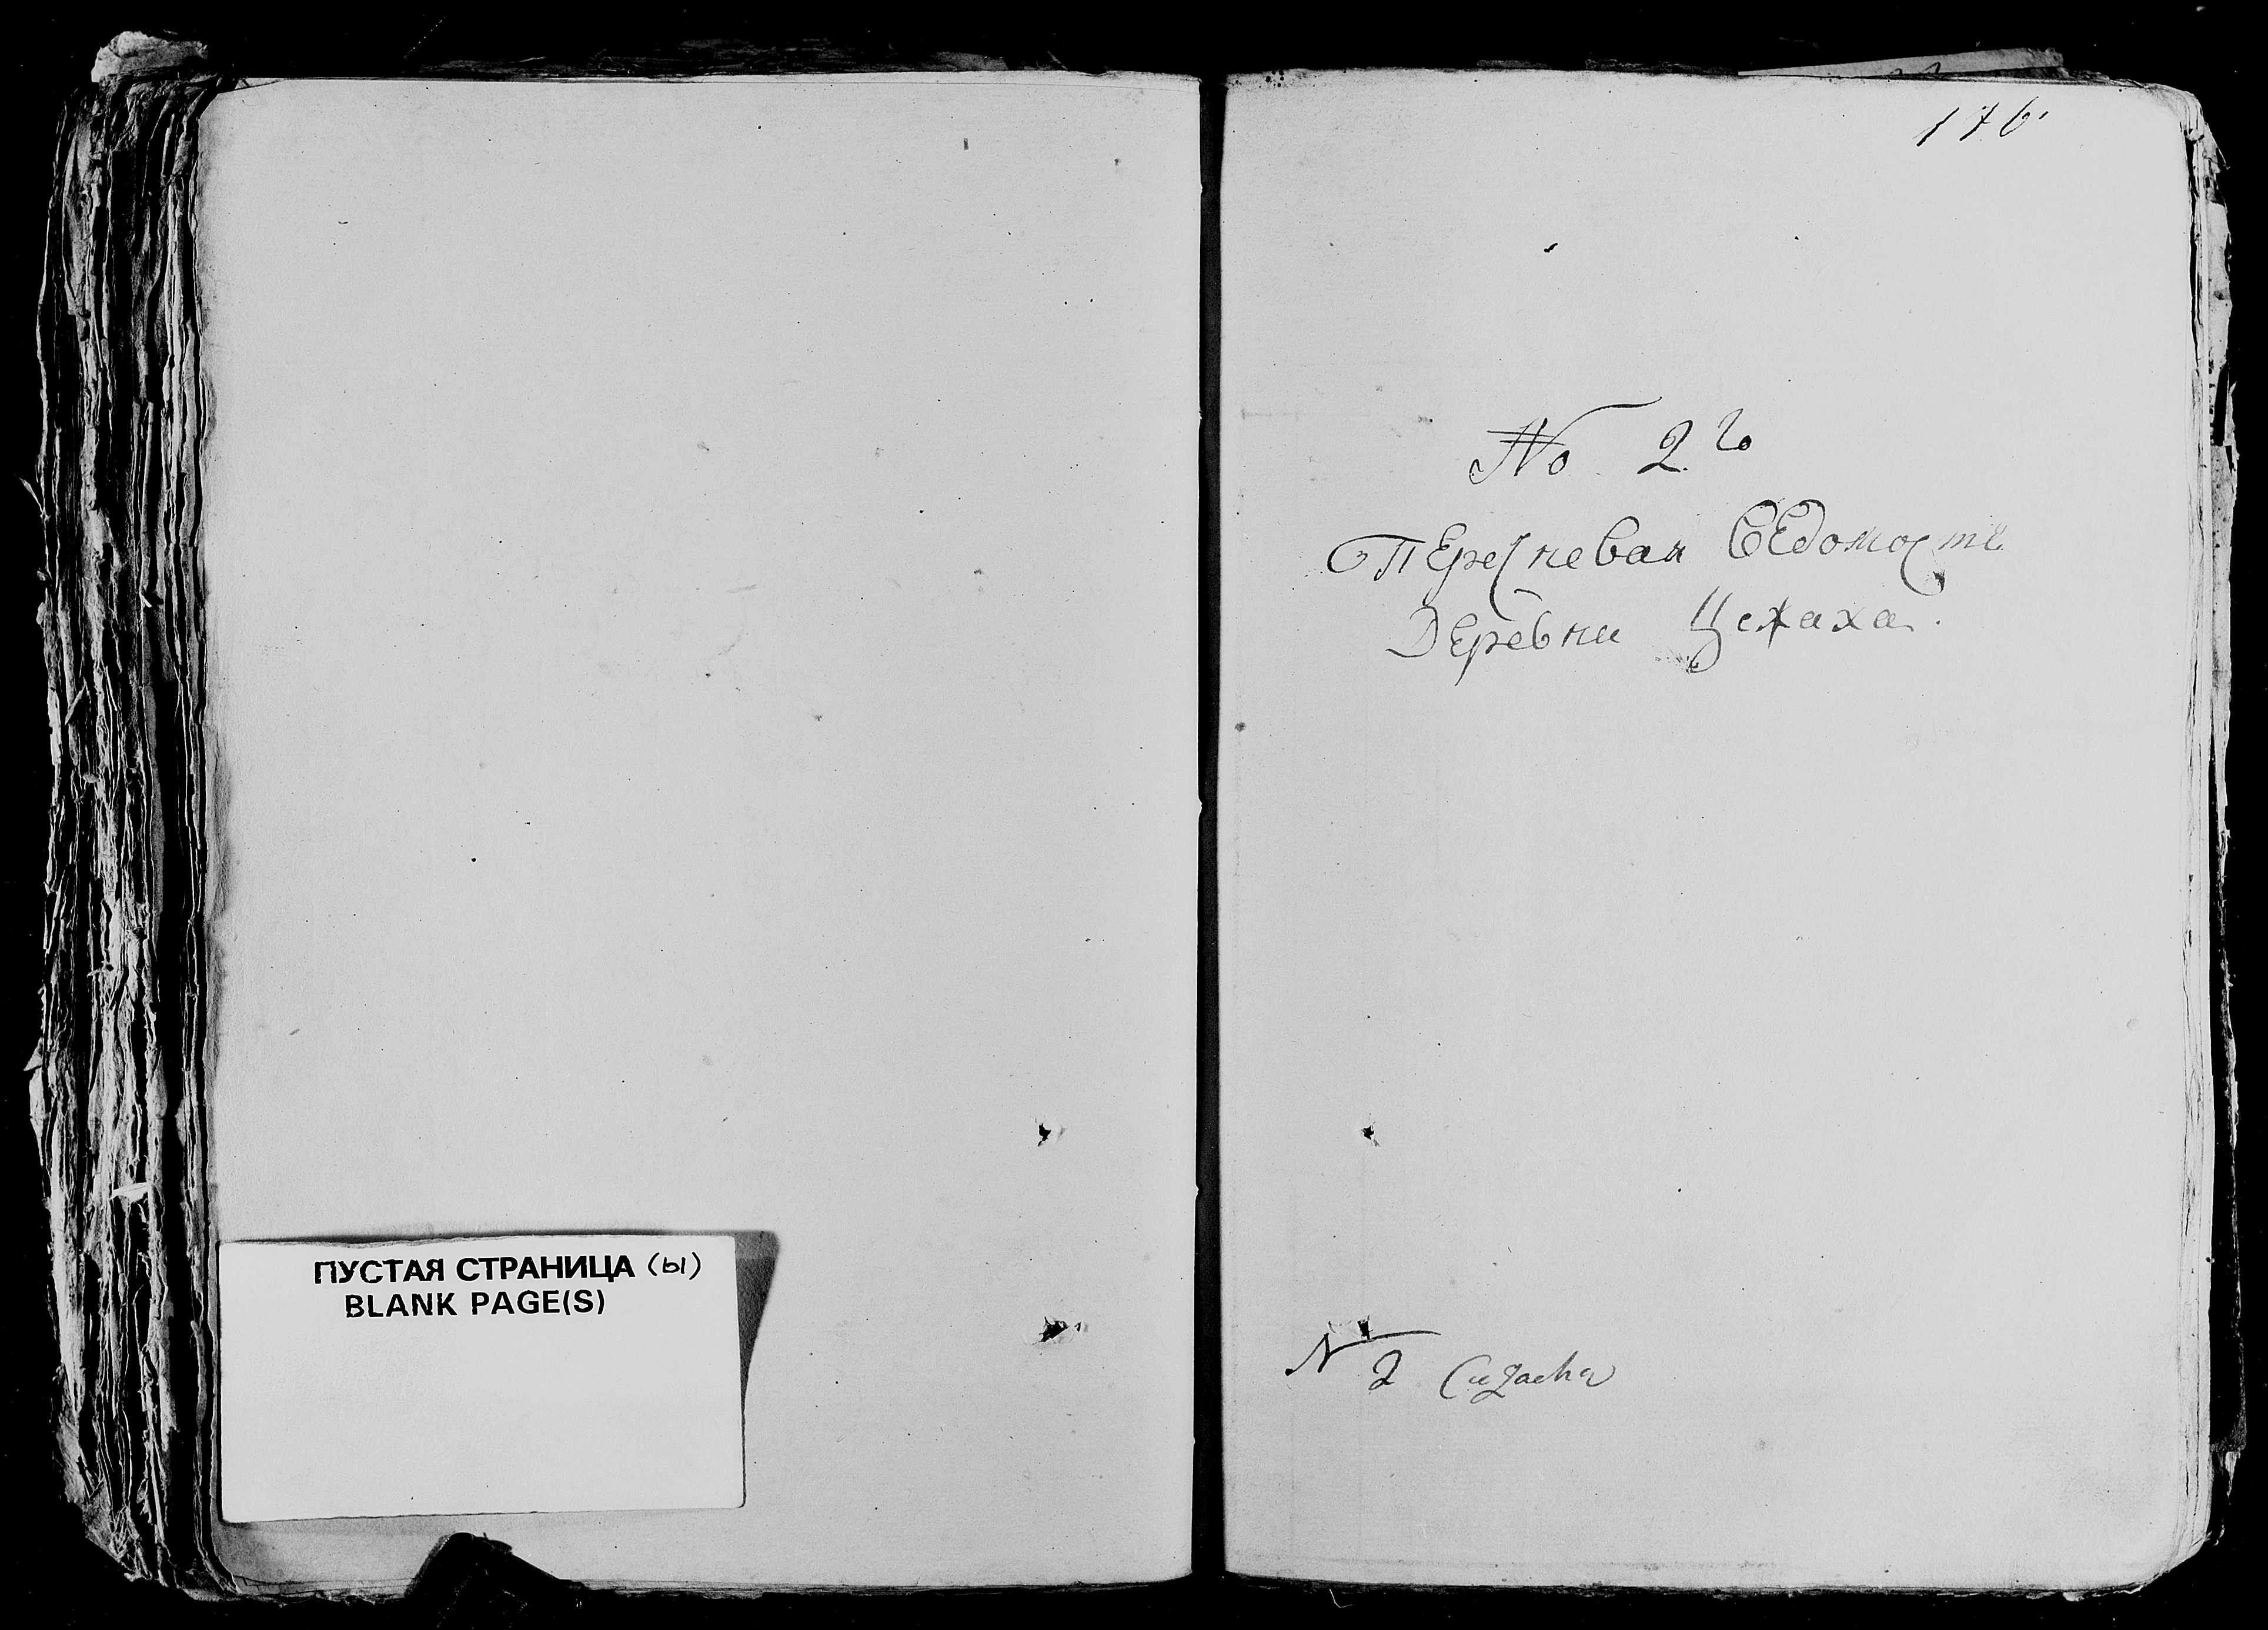 ПУСТАЯ СТРАНИЦА (ы)
BLANK PAGE(S)
176
No 2.го
Перечневая Ведомость
Деревни Цежаха.
N 2